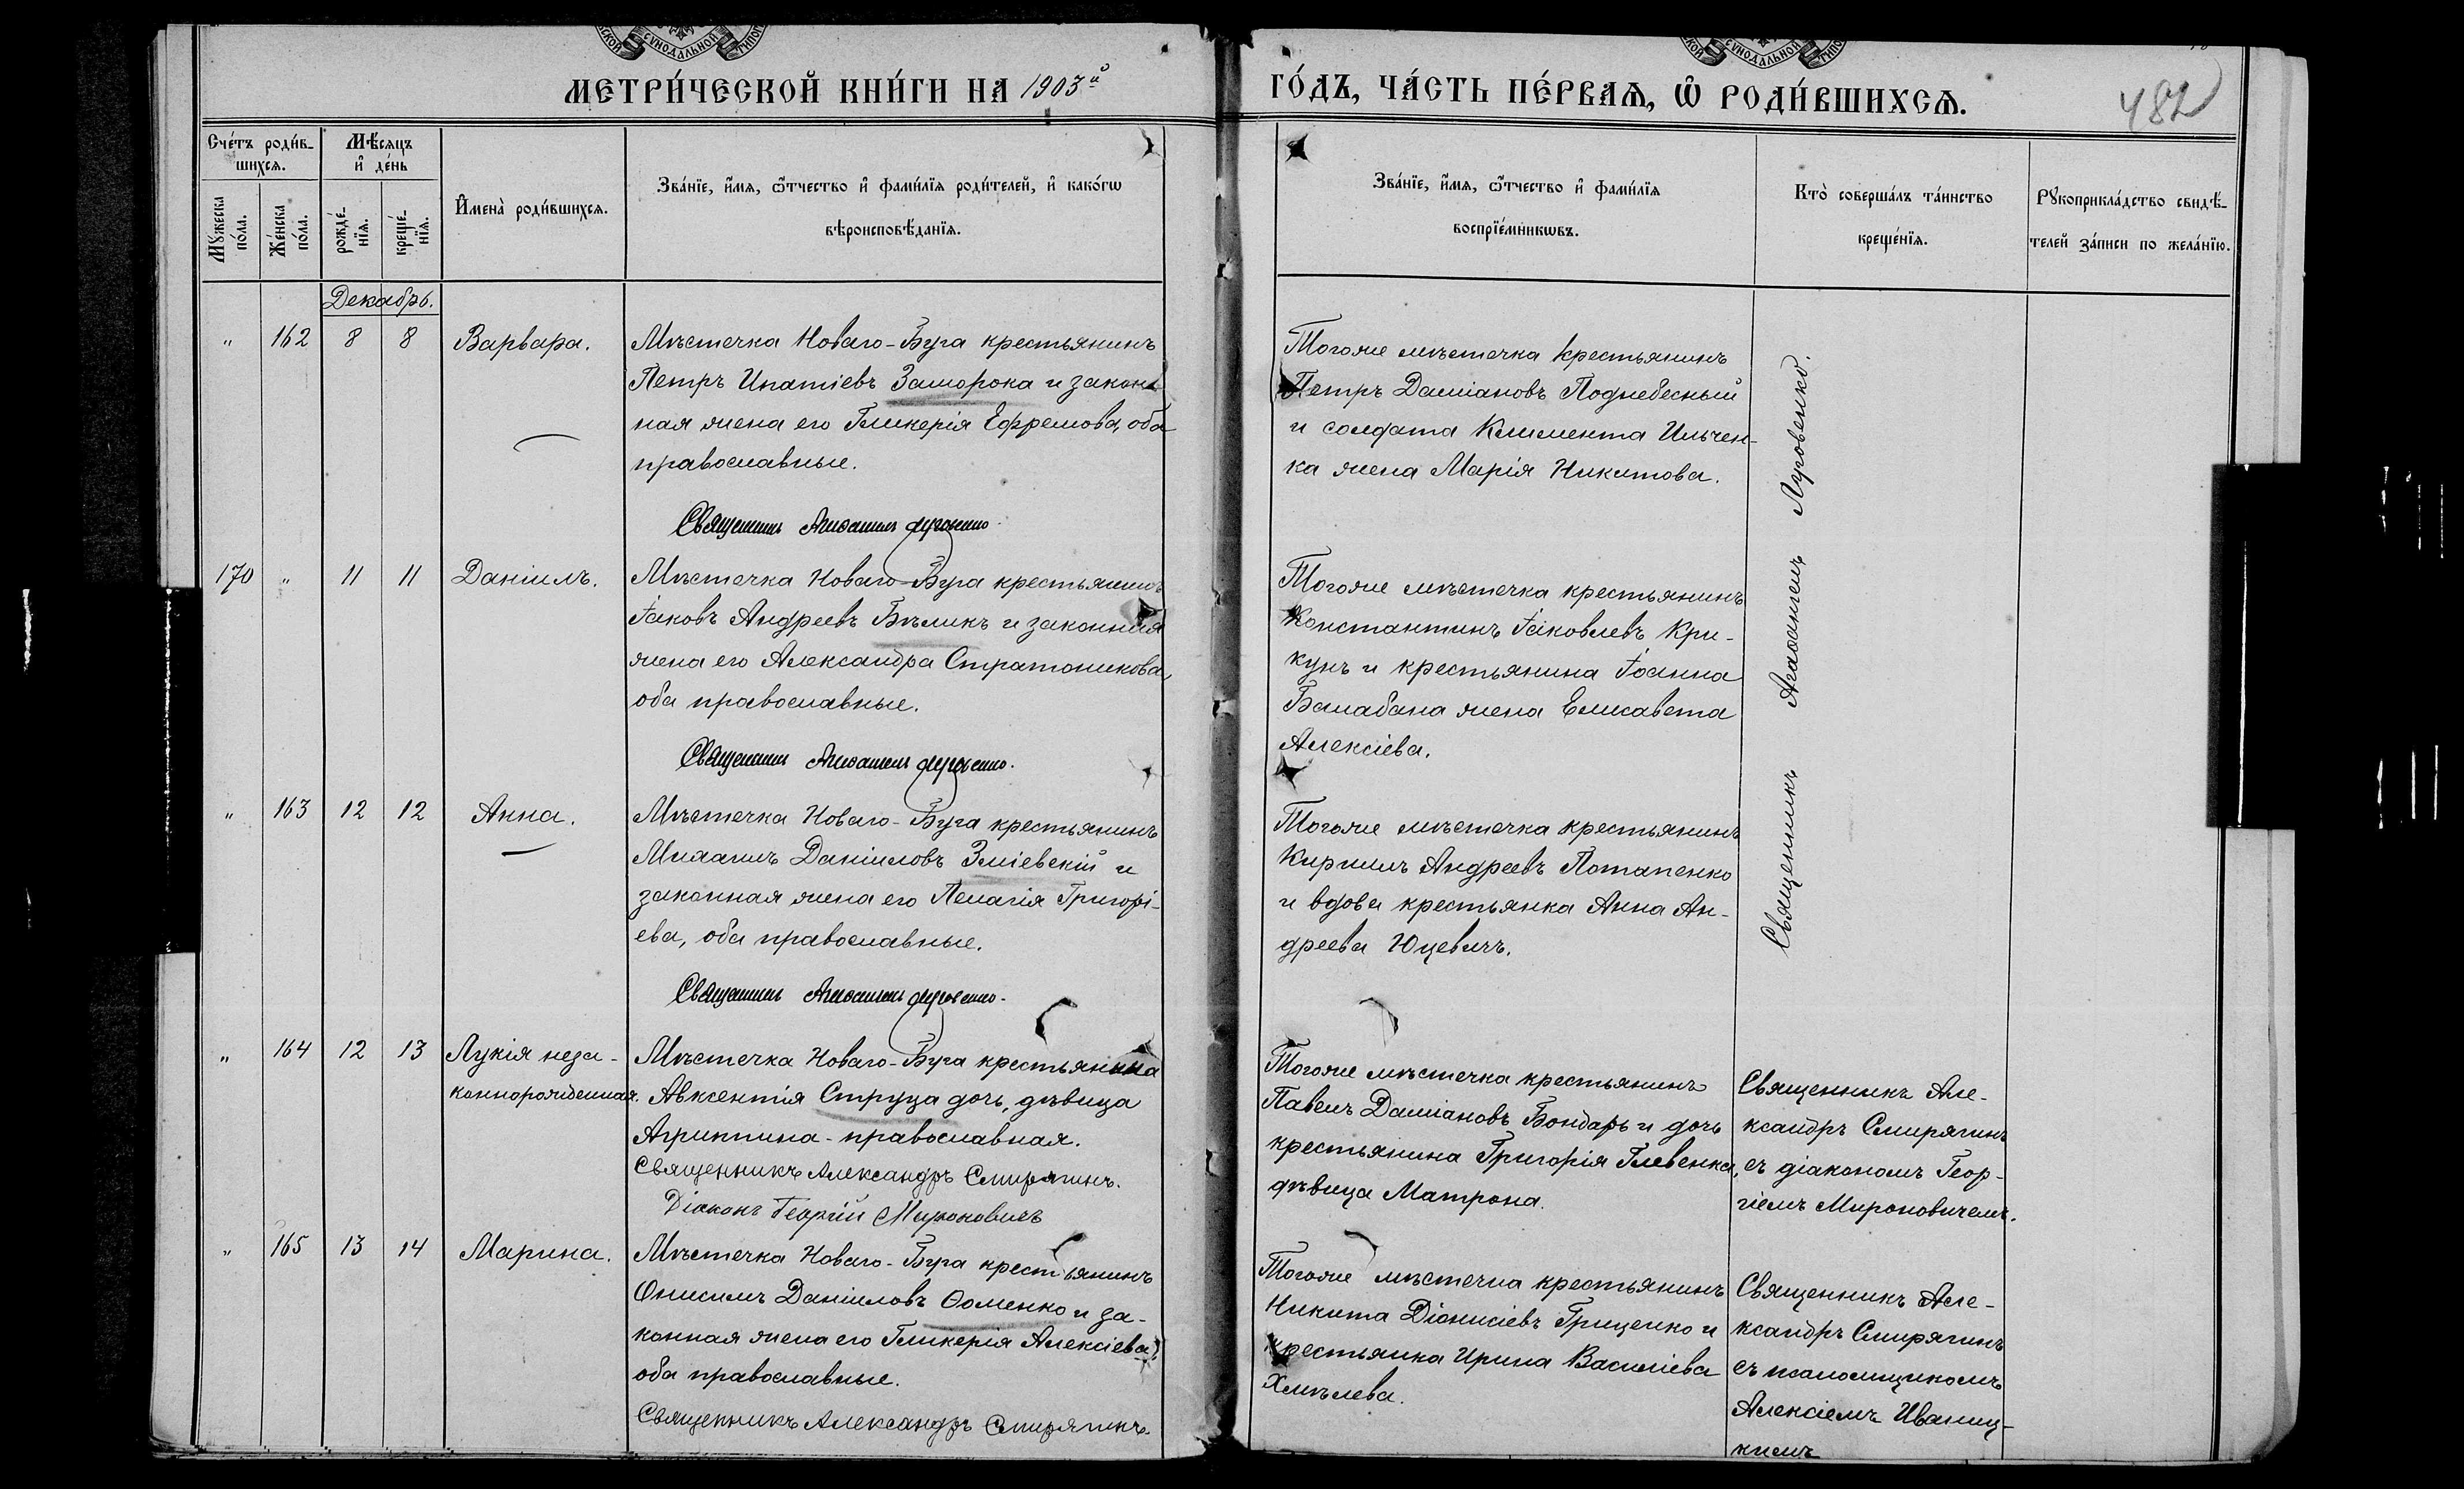 СУНОДАЛЬНОЙ
СУНОДАЛЬНОЙ
МЕТРИ́ЧЕСКОЙ КНИ́ГИ НА 1903й
ГО́ДЪ, ЧА́СТЬ ПЕ́РВАѦ, Ѡ РОДИ́ВШИХСѦ.
482
Сче́тъ роди́в-
шихсѧ.
Мꙋ́жеска
по́ла.
Же́нска
по́ла.
Мѣ́сяцъ
и҆ де́нь
рожде́-
нїѧ.
креще́-
нїѧ.
И҆мена̀ роди́вшихсѧ.
Зва́нїе, и҆́мѧ, ѻ҆́тчество и҆ фами́лїѧ роди́телей, и҆ како́гѡ
вѣроисповѣ́данїѧ.
Зва́нїе, и҆́мѧ, ѻ҆́тчество и҆ фами́лїѧ
воспрїе́мникѡвъ.
Кто̀ соверша́лъ та́инство
креще́нїѧ.
Рꙋкоприкла́дство свидѣ́-
телей за́писи по жела́нїю.
Декабрь.
" 162 8 8 Варвара.
Мѣстечка Новаго-Буга крестьянинъ
Петръ Ипатіевъ Заморока и закон-
ная жена его Гликерія Ефремова, оба
православные.
Священникъ Агаѳангелъ Луговенко.
Тогоже мѣстечка крестьянинъ
Петръ Даміановъ Поднебесный
и солдата Климента Ильчен-
ка жена Марія Никитова.
170 " 11 11 Даніилъ.
Мѣстечка Новаго-Буга крестьянинъ
Іаковъ Андреевъ Бѣликъ и законная
жена его Александра Стратоникова,
оба православные.
Священникъ Агаѳангелъ Луговенко.
Тогоже мѣстечка крестьянинъ
Константинъ Іаковлевъ Кри-
кунъ и крестьянина Іоанна
Балабана жена Елисавета
Алексіева.
" 163 12 12 Анна.
Мѣстечка Новаго-Буга крестьянинъ
Михаилъ Даніиловъ Зміевскій и
законная жена его Пелагія Григорі-
ева, оба православные.
Священникъ Агаѳангелъ Луговенко.
Тогоже мѣстечка крестьянинъ
Кириллъ Андреевъ Потапенко
и вдова крестьянка Анна Ан-
дреева Юцевичъ.
Священникъ Агаѳангелъ Луговенко.
" 164 12 13 Лукія неза-
коннорожденная.
Мѣстечка Новаго-Буга крестьянина
Авксентія Струца дочь, дѣвица
Агриппина-православная.
Священникъ Александръ Смирягинъ.
Діаконъ Георгій Мироновичъ
Тогоже мѣстечка крестьянинъ
Павелъ Даміановъ Бондарь и дочь
крестьянина Григорія Глевенка,
дѣвица Матрона.
Священникъ Але-
ксандръ Смирягинъ
съ діакономъ Геор-
гіемъ Мироновичемъ.
" 165 13 14 Марина.
Мѣстечка Новаго-Буга крестьянинъ
Онисимъ Даніиловъ Ѳоменко и за-
конная жена его Гликерія Алексіева,
оба православные.
Священникъ Александръ Смирягинъ.
Тогоже мѣстечка крестьянинъ
Никита Діонисіевъ Гриценко и
крестьянка Ирина Василіева
Хмѣлева.
Священникъ Але-
ксандръ Смирягинъ
съ псаломщикомъ
Алексіемъ Иваниц-
кимъ